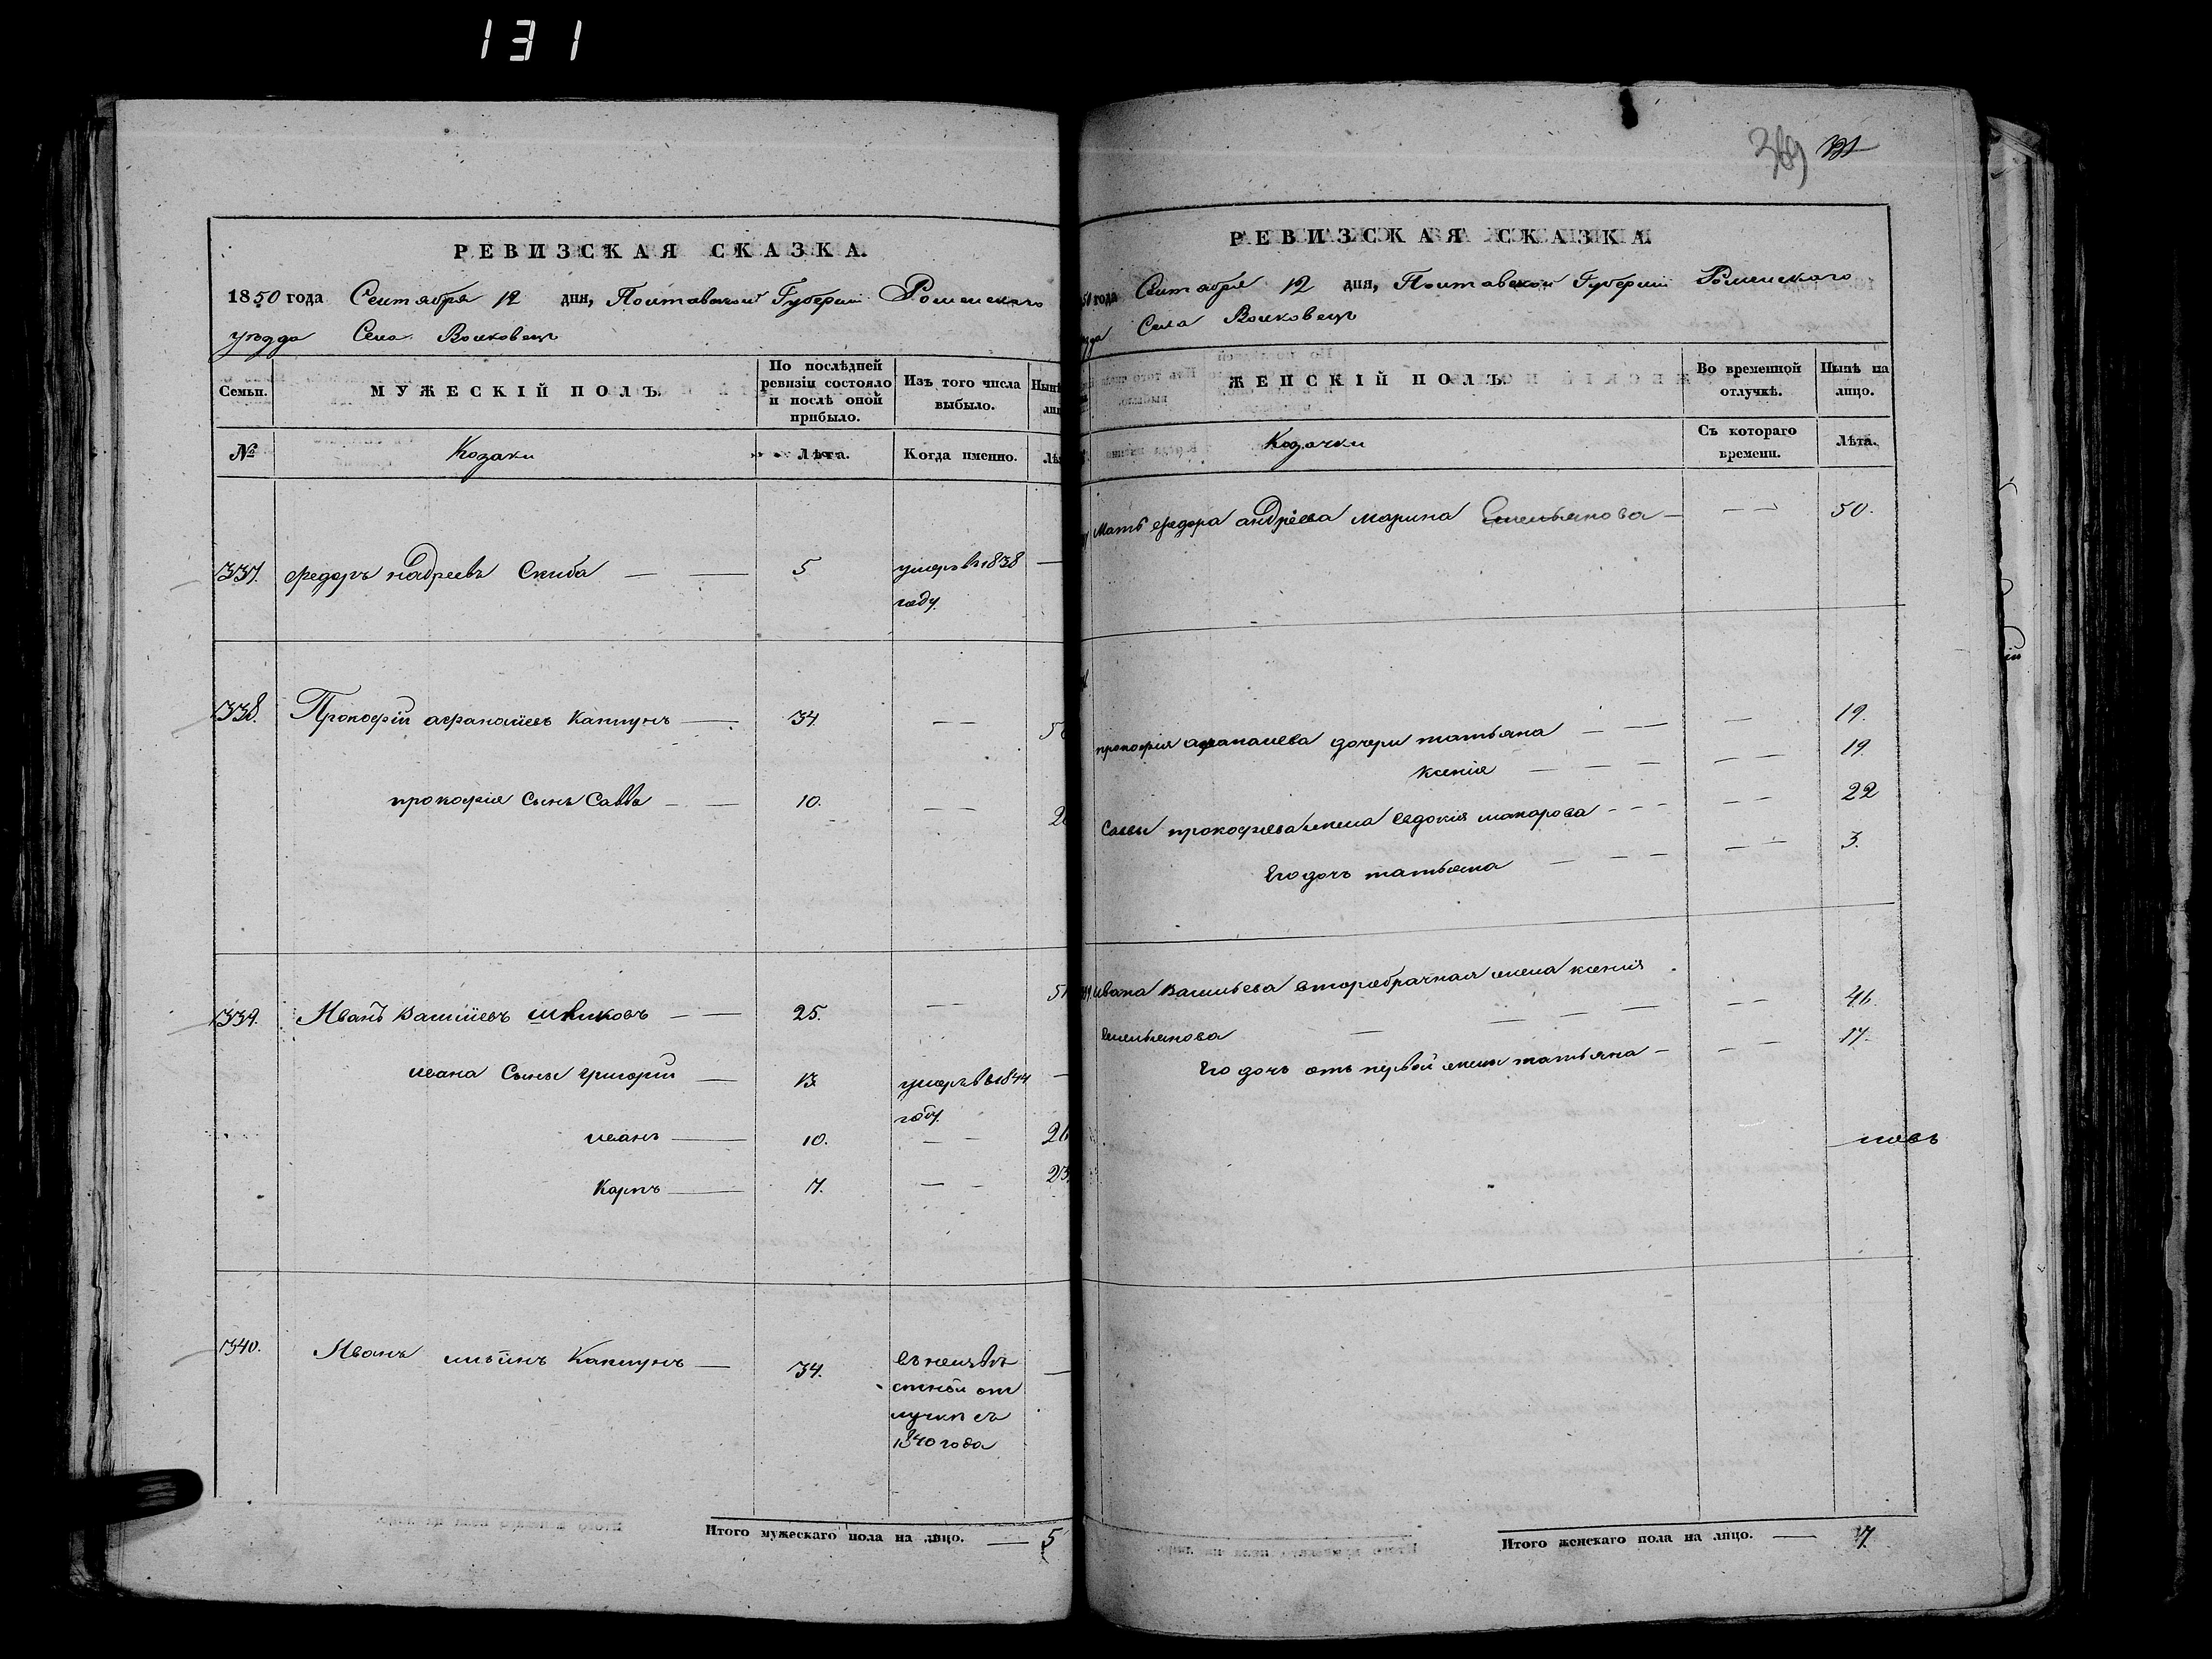 131
369 131
РЕВИЗСКАЯ СКАЗКА.
1850 года Сентября 12 дня, Полтавской Губернии Роменского
уѣзда Села Волковец
Семьи. МУЖЕСКІЙ ПОЛЪ. По послѣдней ревизіи состояло и послѣ оной прибыло. Изъ того числа выбыло. Нынѣ
№ Козаки Лѣта. Когда именно.
337. Федоръ Андреевъ Скиба — — 5 умеръ в 1838 —
году
338. Прокофій афанасіевъ Каптунъ — 34. — —
прокофія Сынъ Савва — — 10. — —
339. Иванъ Василіевъ — — 25. — —
ивана Сыны григорій — 13 умеръ в 1844 —
году
иванъ — 10. — — 26
Карпъ — 7. — — 23
340. Иванъ ильинъ Каптунъ — 34. въ неизвѣ —
стной от
лучкѣ съ
1840 года
Итого мужескаго пола на лицо. — 5
РЕВИЗСКАЯ СКАЗКА
50 года Сентября 12 дня, Полтавской Губернии Роменскаго
Села Волковец
ЖЕНСКІЙ ПОЛЪ. Во временной отлучкѣ. Нынѣ на лицо.
Козачки Съ котораго времени. Лѣта.
Мать федора андрѣева марина Емельянова — — — 50.
прокофія афанасиева дочери татьяна — — — 19.
ксенія — — — — — 19
Саввы прокофиева жена евдокія макарова — — — — — 22
Его дочь татьяна — — — — — 3.
ивана Васильева второбрачная жена ксенія
Емельянова — — — — — — 46.
Его дочь отъ первой жены татьяна — — — 17.
Итого женскаго пола на лицо. — 7.